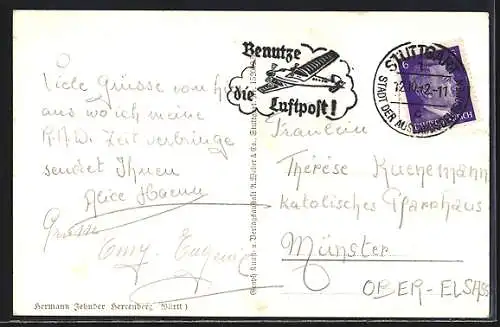 Benutze
die
Luftpost!
STUTTGART
12.10.42.-11
STADT DER AUSLANDSDEUTSCHEN
6
Viele Grüsse vom
aus wo ich meine
R.A.D. Zeit verbringe
sendet Ihnen
Alice
Grüsse
Emy. Eugene
Fräulein
Thérèse Kuenemann
Katolisches Pfarrhaus
Münster
OBER-ELSASS
Hermann Zehnder Herrenberg (Württ.)